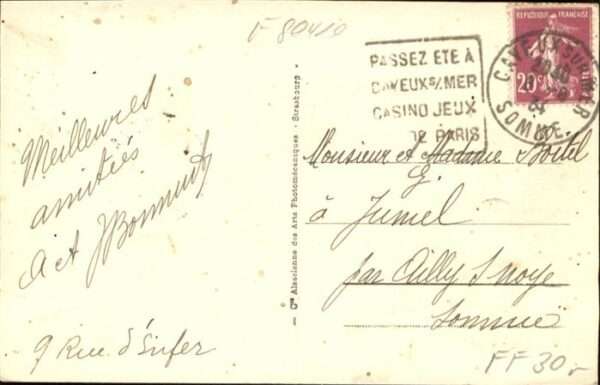 F 80410
PASSEZ ETE À
CAYEUX S/MER
CASINO JEUX
DE PARIS
REPUBLIQUE FRANÇAISE
20
CAYEUX SUR MER
SOMME
Meilleures
amitiés
A et J Bonnard
9 Rue d'Enfer
Cie Alsacienne des Arts Photomécaniques - Strasbourg
Monsieur et Madame Boitel
G.
à Jumel
par Ailly S Noye
Somme
FF 30,-